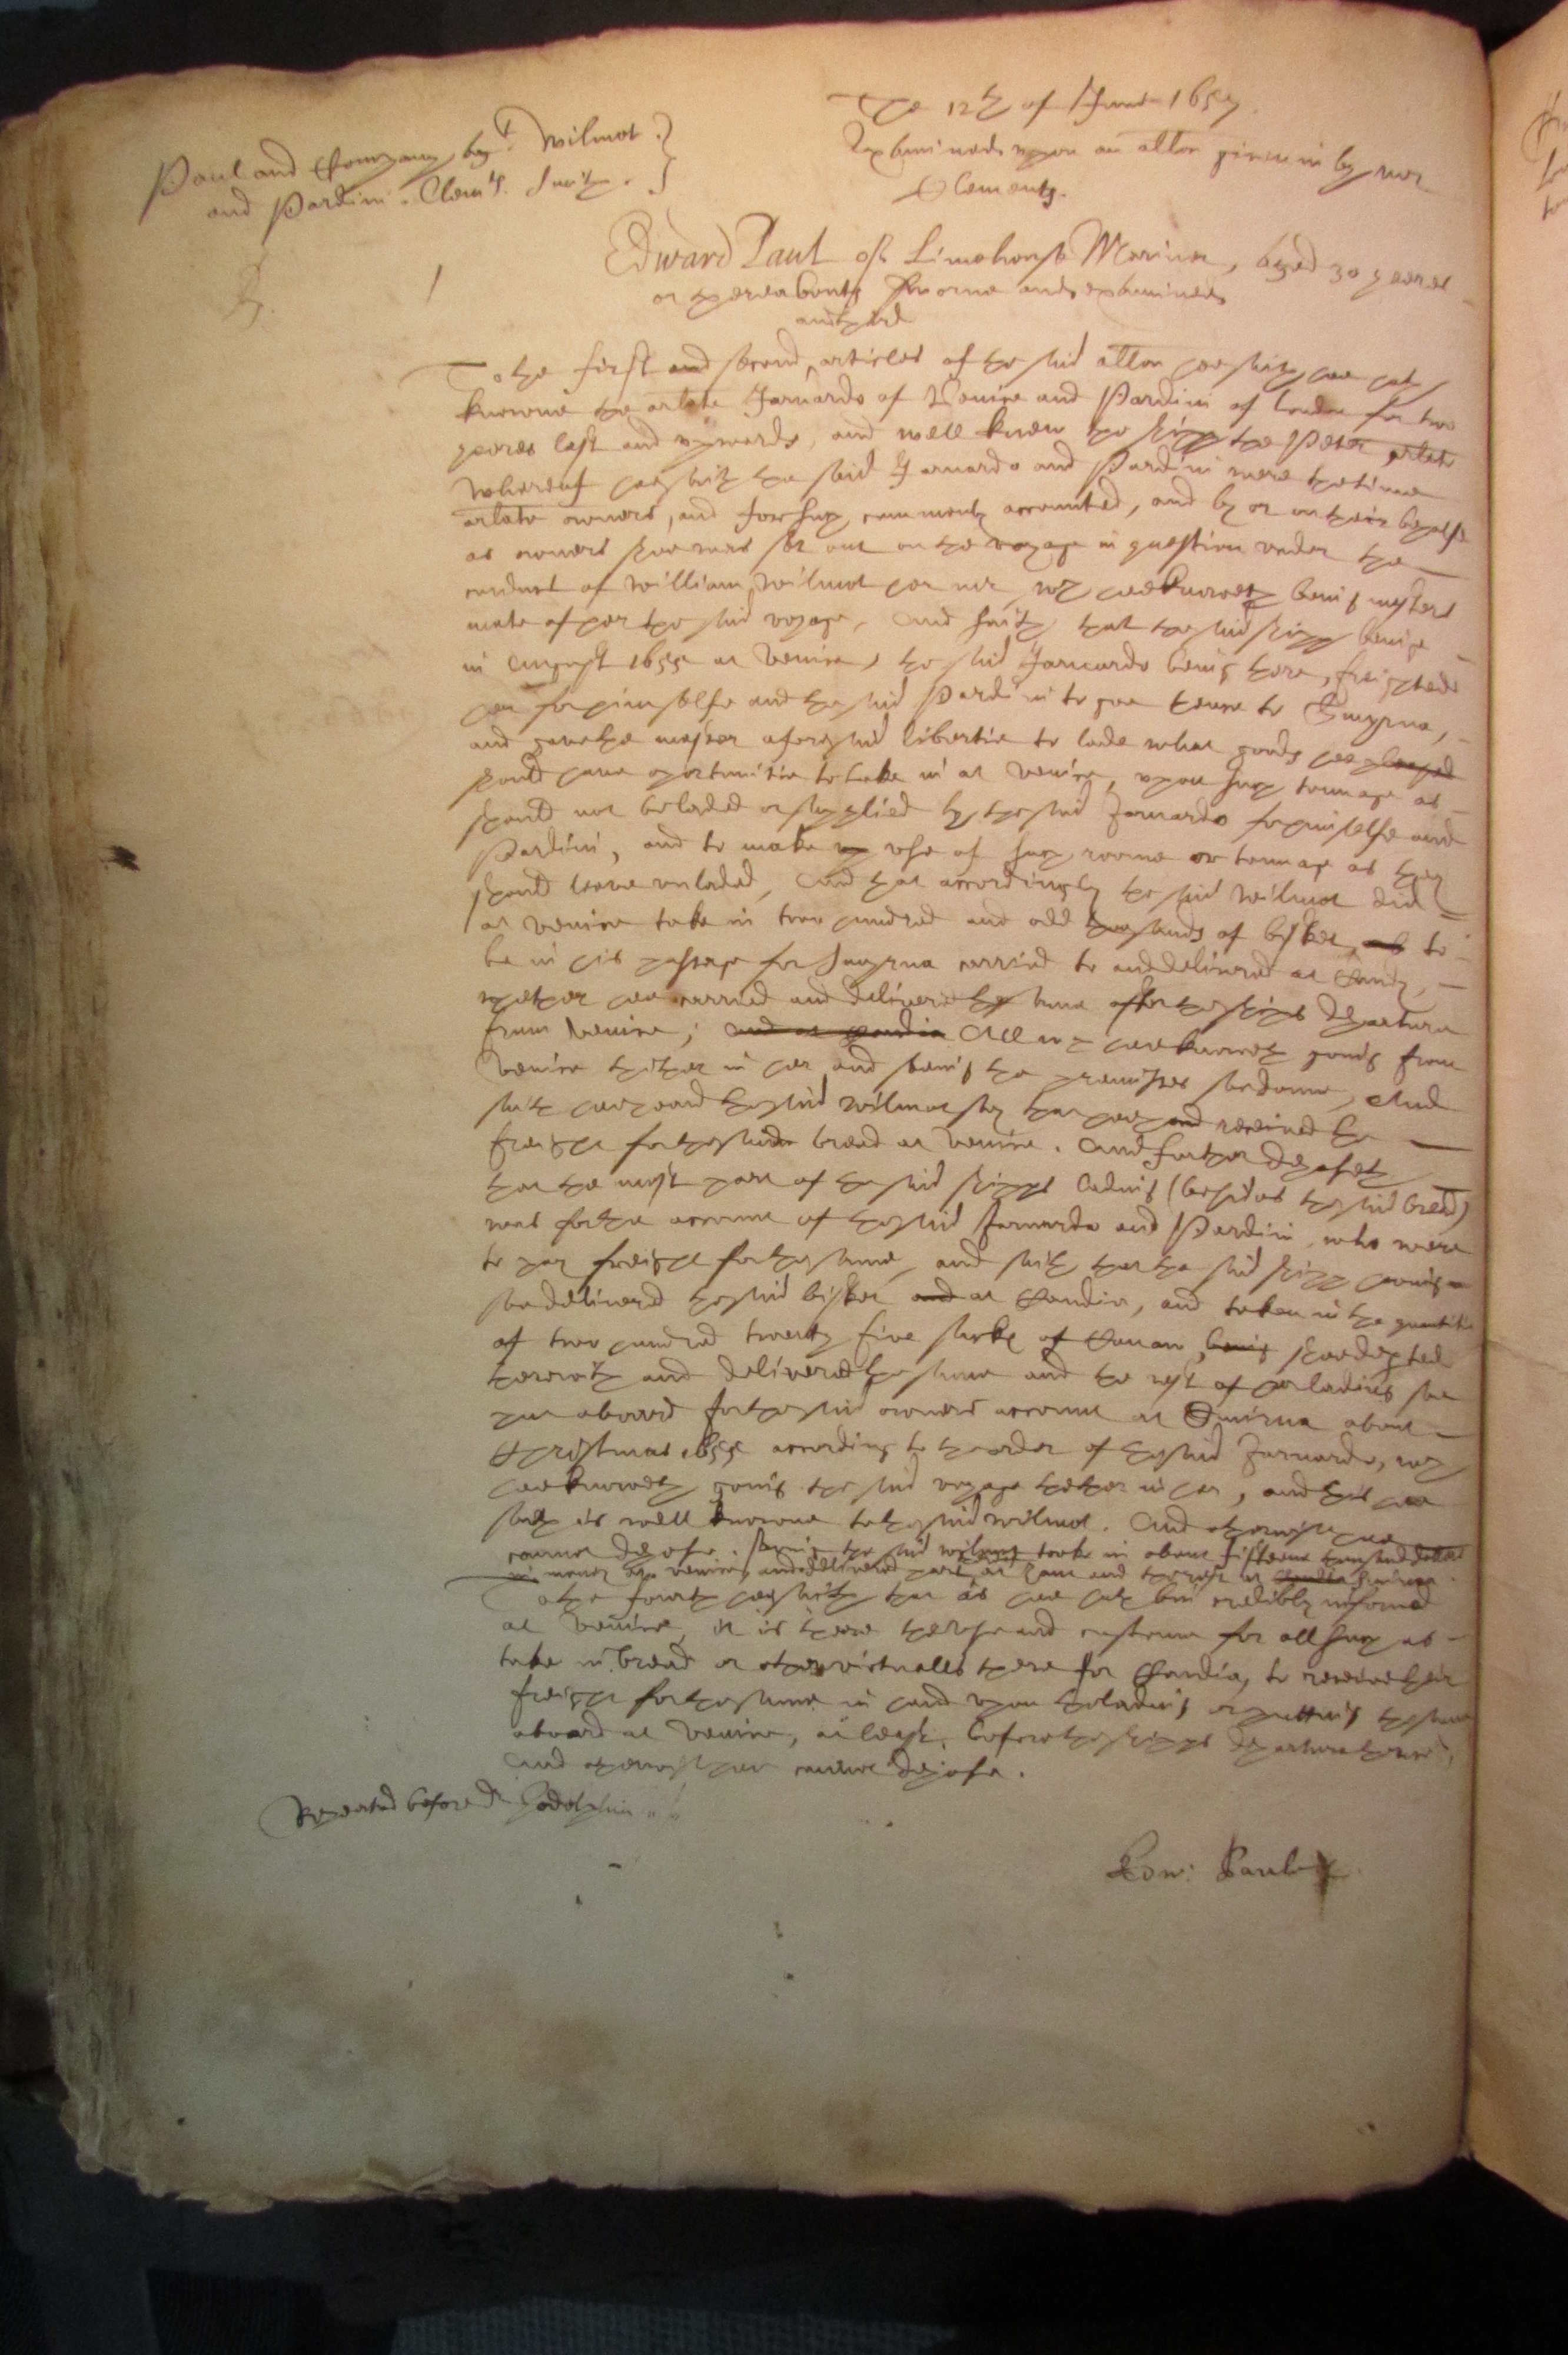 The 12th of June 1657.
Examined upon an allon given in by mr
Clements.
Paul and Company agt Wilmot
and Pardini. Clemts. Smith.
1
Edward Paul of Limehouse Mariner, aged 30 yeares
or thereabouts sworne and examined
and hard
To the first and second articles of the said allon hee saith hee hath
knowne the arlate Jarnardo of Venice and Pardini of London for two
yeeres last and upwards, and well knew the shipp the Peter arlate
whereof hee saith the said Jarnardo and Pardini were the time
arlate owners, and for such commonly accounted, and by or on their behalfe
as owners shee was set out on the voyage in question under the
conduct of William Wilmot her mr, wch hee knoweth being masters
mate of her the said voyage, And saith that the said shipp being
in August 1655 at Venice, the said Jarnardo being there, freighted
her for himselfe and the said Pardini to goe thence to Smyrna,
and gave the master aforesaid libertie to lade what goods hee pleased
should have oportunitie to take in at Venice, upon such tonnage as
should not be laded or supplied by the said Jarnardo for himselfe and
Pardini, and to make up use of such roome or tonnage as they
should leave unladed, And that accordingly the said Wilmot did
at Venice take in two hundred and odd thousands of bisket, to
be in his passage for Smyrna carried to and delivered at Candy,
whether hee carried and delivered the same after the shipps departure
from Venice; and at Candia All wch hee knoweth going from
Venice thither in her and seeing the premisses soe donne, And
saith hee heard the said Wilmot say that hee had received the
freight for the said bread at Venice. And further deposeth
that the most part of the said shipps lading (besides the said bread)
was for the account of the said Jarnardo and Pardini, who were
to pay freight for the same, and saith that the said shipp having
soe delivered the said bisket and at Candia, and taken in the quantitie
of two hundred twenty five sacks of being shee departed
therewith and delivered the same and the rest of her lading soe
put aboard for the said owners account at Smirna about
Christmas 1655 according to the order of the said Jarnardo, wch
hee knoweth going the said voyage thether in her, and this hee
saith is well knowne to the said Wilmot. And otherwise hee
cannot depose. Saving the said Wilmot tooke in about fifteene thousand dollers
in money at Venice, and delivered part at and the rest at Candia Smirna.
To the fourth hee saith that as hee hath bin credibly informed
at Venice, it is there the use and custome for all such as
take in bread or other victualls there for Candia, to receive their
freight for the same in hand upon the lading or putting the same
aboard at Venice, at least before the shipps departure thence,
And otherwise hee cannot depose.
Repeated before dr Godolphin.
Edw: Paule